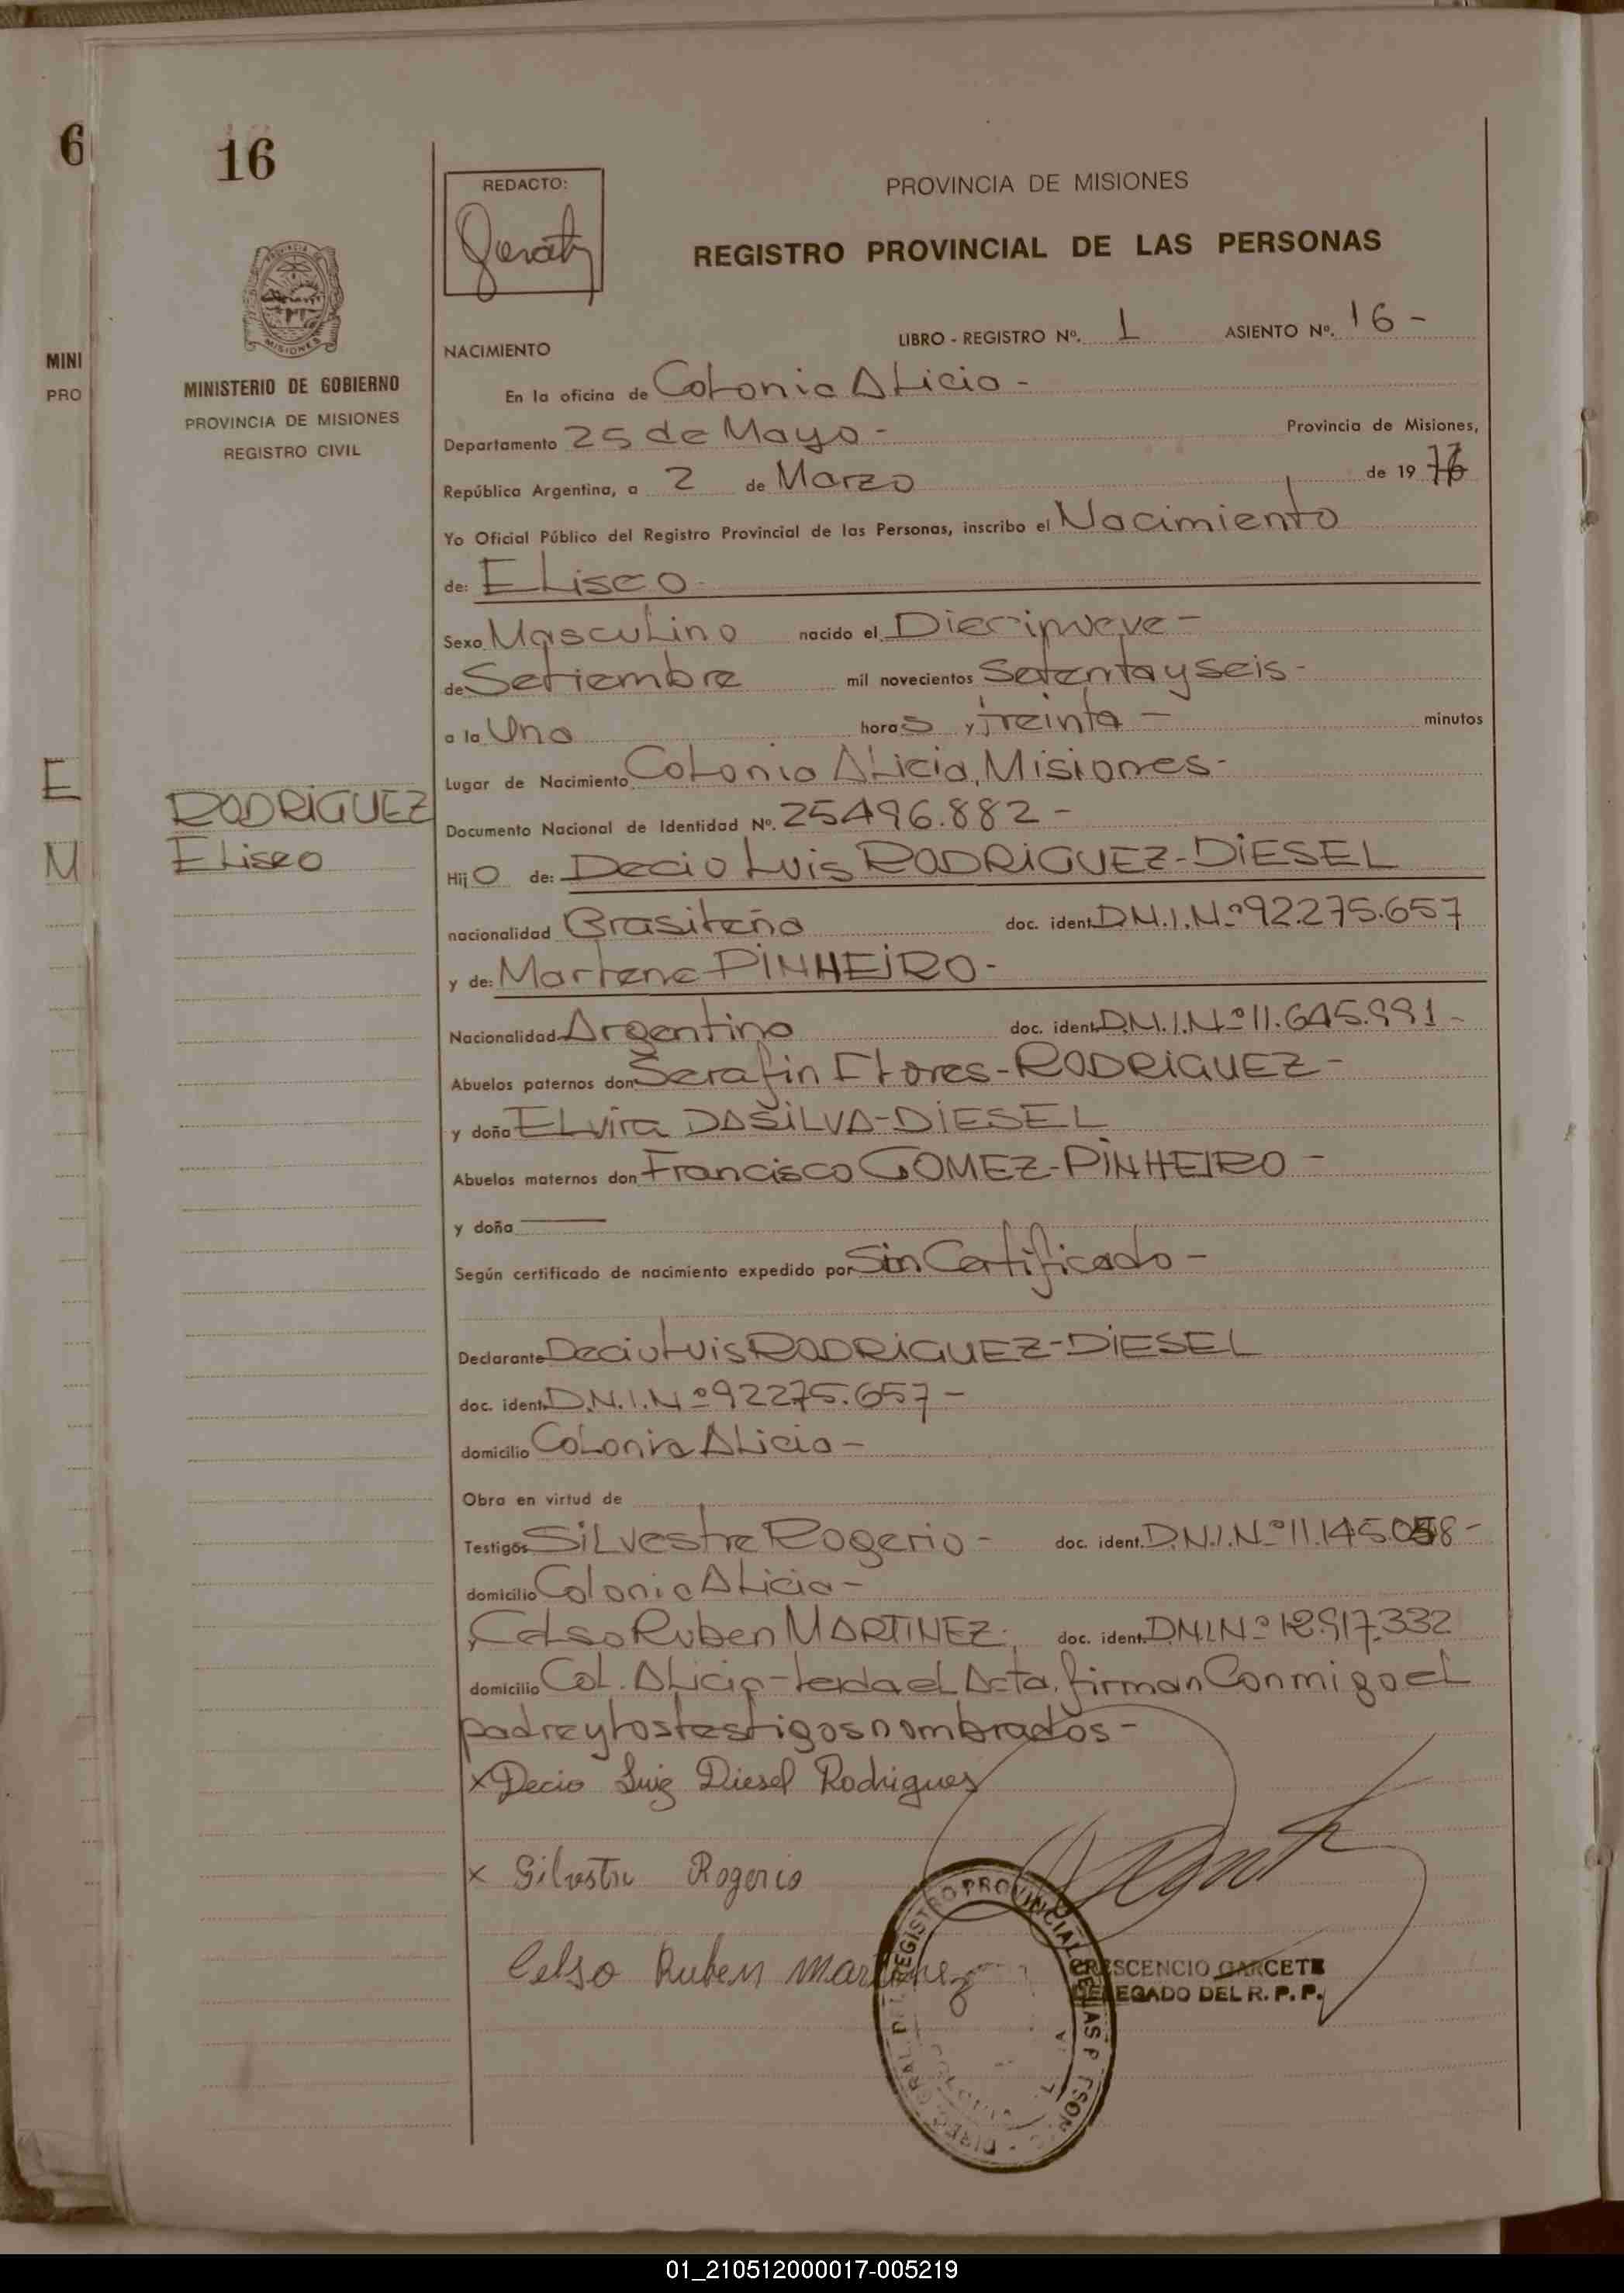 6
16
REDACTO:
PROVINCIA DE MISIONES
REGISTRO PROVINCIAL DE LAS PERSONAS
LIBRO - REGISTRO Nº. 1 ASIENTO Nº. 16 -
NACIMIENTO
MINI
PRO
MINISTERIO DE GOBIERNO
PROVINCIA DE MISIONES
REGISTRO CIVIL
En la oficina de Colonia Alicia -
Departamento 25 de Mayo - Provincia de Misiones,
República Argentina, a 2 de Marzo de 19
Yo Oficial Público del Registro Provincial de las Personas, inscribo el Nacimiento
de: Eliseo -
Sexo Masculino nacido el Diecinueve -
de Setiembre mil novecientos Setenta y seis -
a la Una horas y treinta - minutos
Lugar de Nacimiento Colonia Alicia, Misiones -
E
M
RODRIGUEZ
Eliseo
Documento Nacional de Identidad Nº. 25496.882 -
Hijo de: Decio Luis RODRIGUEZ-DIESEL
nacionalidad Brasileña doc. ident. D.N.I.Nº 92.275.657
y de: Marlene PINHEIRO -
Nacionalidad Argentina doc. ident. D.N.I.Nº 11.645.991 -
Abuelos paternos don Serafin Flores-RODRIGUEZ -
y doña Elvira DASILVA-DIESEL
Abuelos maternos don Francisco GOMEZ-PINHEIRO -
y doña
Según certificado de nacimiento expedido por Sin Certificado -
Declarante Decio Luis RODRIGUEZ-DIESEL
doc. ident. D.N.I.Nº 92275.657 -
domicilio Colonia Alicia -
Obra en virtud de
Testigos Silvestre Rogerio - doc. ident. D.N.I.Nº 11.145.058 -
domicilio Colonia Alicia -
y Celso Ruben MARTINEZ, doc. ident. D.N.I.Nº 12.917.332
domicilio Col. Alicia - leida el Acta, firman Conmigo el
padre y los testigos nombrados -
x Decio Luiz Diesel Rodrigues
x Silvestre Rogerio
Celso Ruben Martinez
REGISTRO PROVINCIAL DE LAS
CRESCENCIO GARCETE
DELEGADO DEL R. P. P.
01_210512000017-005219